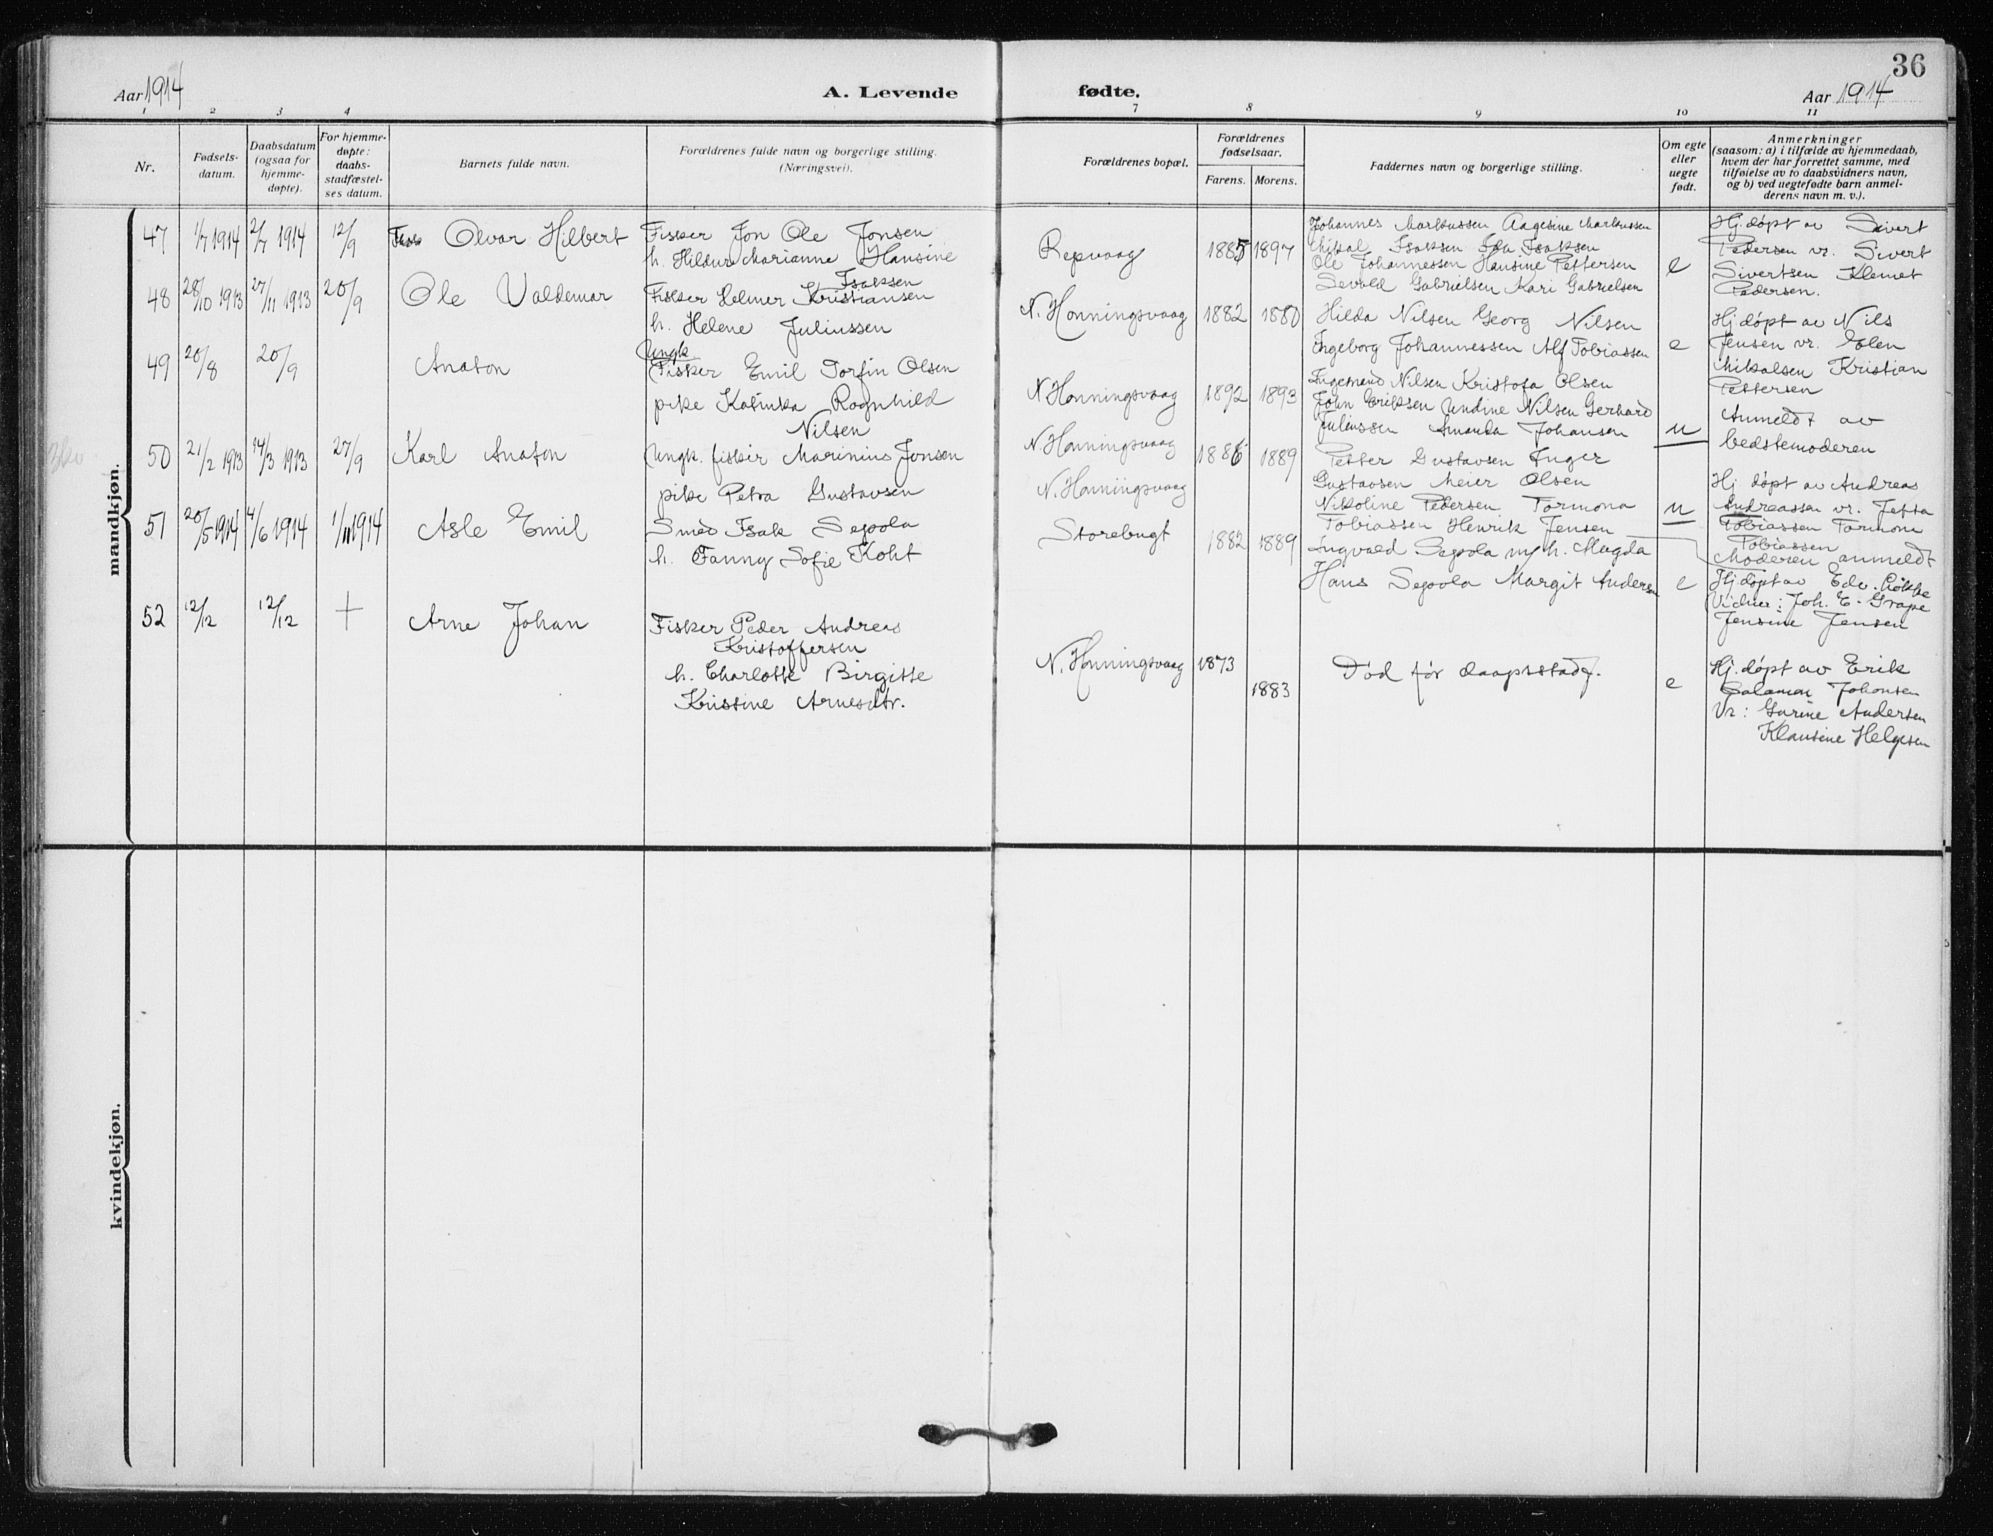 36
Aar 1914 A. Levende fødte. Aar 1914
1 2 3 4 7 8 9 10 11
Nr.
Fødsels-
datum.
Daabsdatum
(ogsaa for
hjemme-
døpte).
For hjemme-
døpte:
daabs-
stadfæstel-
ses datum.
Barnets fulde navn.
Forældrenes fulde navn og borgerlige stilling.
(Næringsvei).
Forældrenes bopæl.
Forældrenes
fødselsaar.
Farens. Morens.
Faddernes navn og borgerlige stilling.
Om egte
eller
uegte
født.
Anmerkninger
(saasom: a) i tilfælde av hjemmedaab,
hvem der har forrettet samme, med
tilføielse av to daabsvidners navn,
og b) ved uegtefødte barn anmel-
derens navn m. v.).
mandkjøn.
47 1/7 1914 2/7 1914 12/9 Olvar Hilbert
Fisker Jon Ole Jonsen
h. Hildur Marianne Hansine
Isaksen
Repvaag 1885 1897
Johannes Markussen Aagesine Markussen
Mikal Isaksen Ida Isaksen
Ole Johannessen Hansine Pettersen
Sevald Gabrielsen Kari Gabrielsen
e
Hj. døpt av Sivert
Pedersen vr. Sivert
Sivertsen Klemet
Pedersen.
48 28/10 1913 27/11 1913 20/9 Ole Valdemar
Fisker Helmer Kristiansen
h. Helene Juliussen
N. Honningsvaag 1882 1880
Hilda Nilsen Georg Nilsen
Ingeborg Johannessen Alf Tobiassen
e
Hj døpt av Nils
Jensen vr. Elen
Mikalsen Kristian
Pettersen
49 20/8 20/9 Anaton
Ungk.
Fisker Emil Torfin Olsen
pike Katinka Ragnhild
Nilsen
N Honningsvaag 1892 1893
Ingemand Nilsen Kristofa Olsen
John Eriksen Undine Nilsen Gerhard
Juliussen Amanda Johansen
u
Anmeldt av
bedstemoderen
50 21/2 1913 14/3 1913 27/9 Karl Anaton
Ungk. fisker Marinius Jensen
pike Petra Gustavsen
N Honningsvaag 1886 1889
N. Honningsvaag
Petter Gustavsen Inger
Gustavsen Meier Olsen
Nikoline Pedersen Tormona
Tobiassen Henrik Jensen
u
Hj døpt av Andreas
Andreassen vr. Jetta
Tobiassen Tormona
Tobiassen
Moderen anmeldt
51 20/5 1914 4/6 1914 1/11 1914 Asle Emil
Smed Isak Seppola
h. Fanny Sofie Koht
Storebugt 1882 1889
Ingvald Seppola m/h. Magda
Hans Seppola Margit Andersen
e
Hj døpt av Edv. Løkke
Vidner: Joh. E. Grape
Jensine Jensen
52 12/12 12/12 + Arne Johan
Fisker Peder Andreas
Kristoffersen
h. Charlotte Birgitte
Kristine Arnesdtr.
N. Honningsvaag 1873
1883
Død før daapsstadf.
e
Hj. døpt av Erik
Salamon Johansen
Vr: Gurine Andersen
Klausine Helgesen
kvindekjøn.